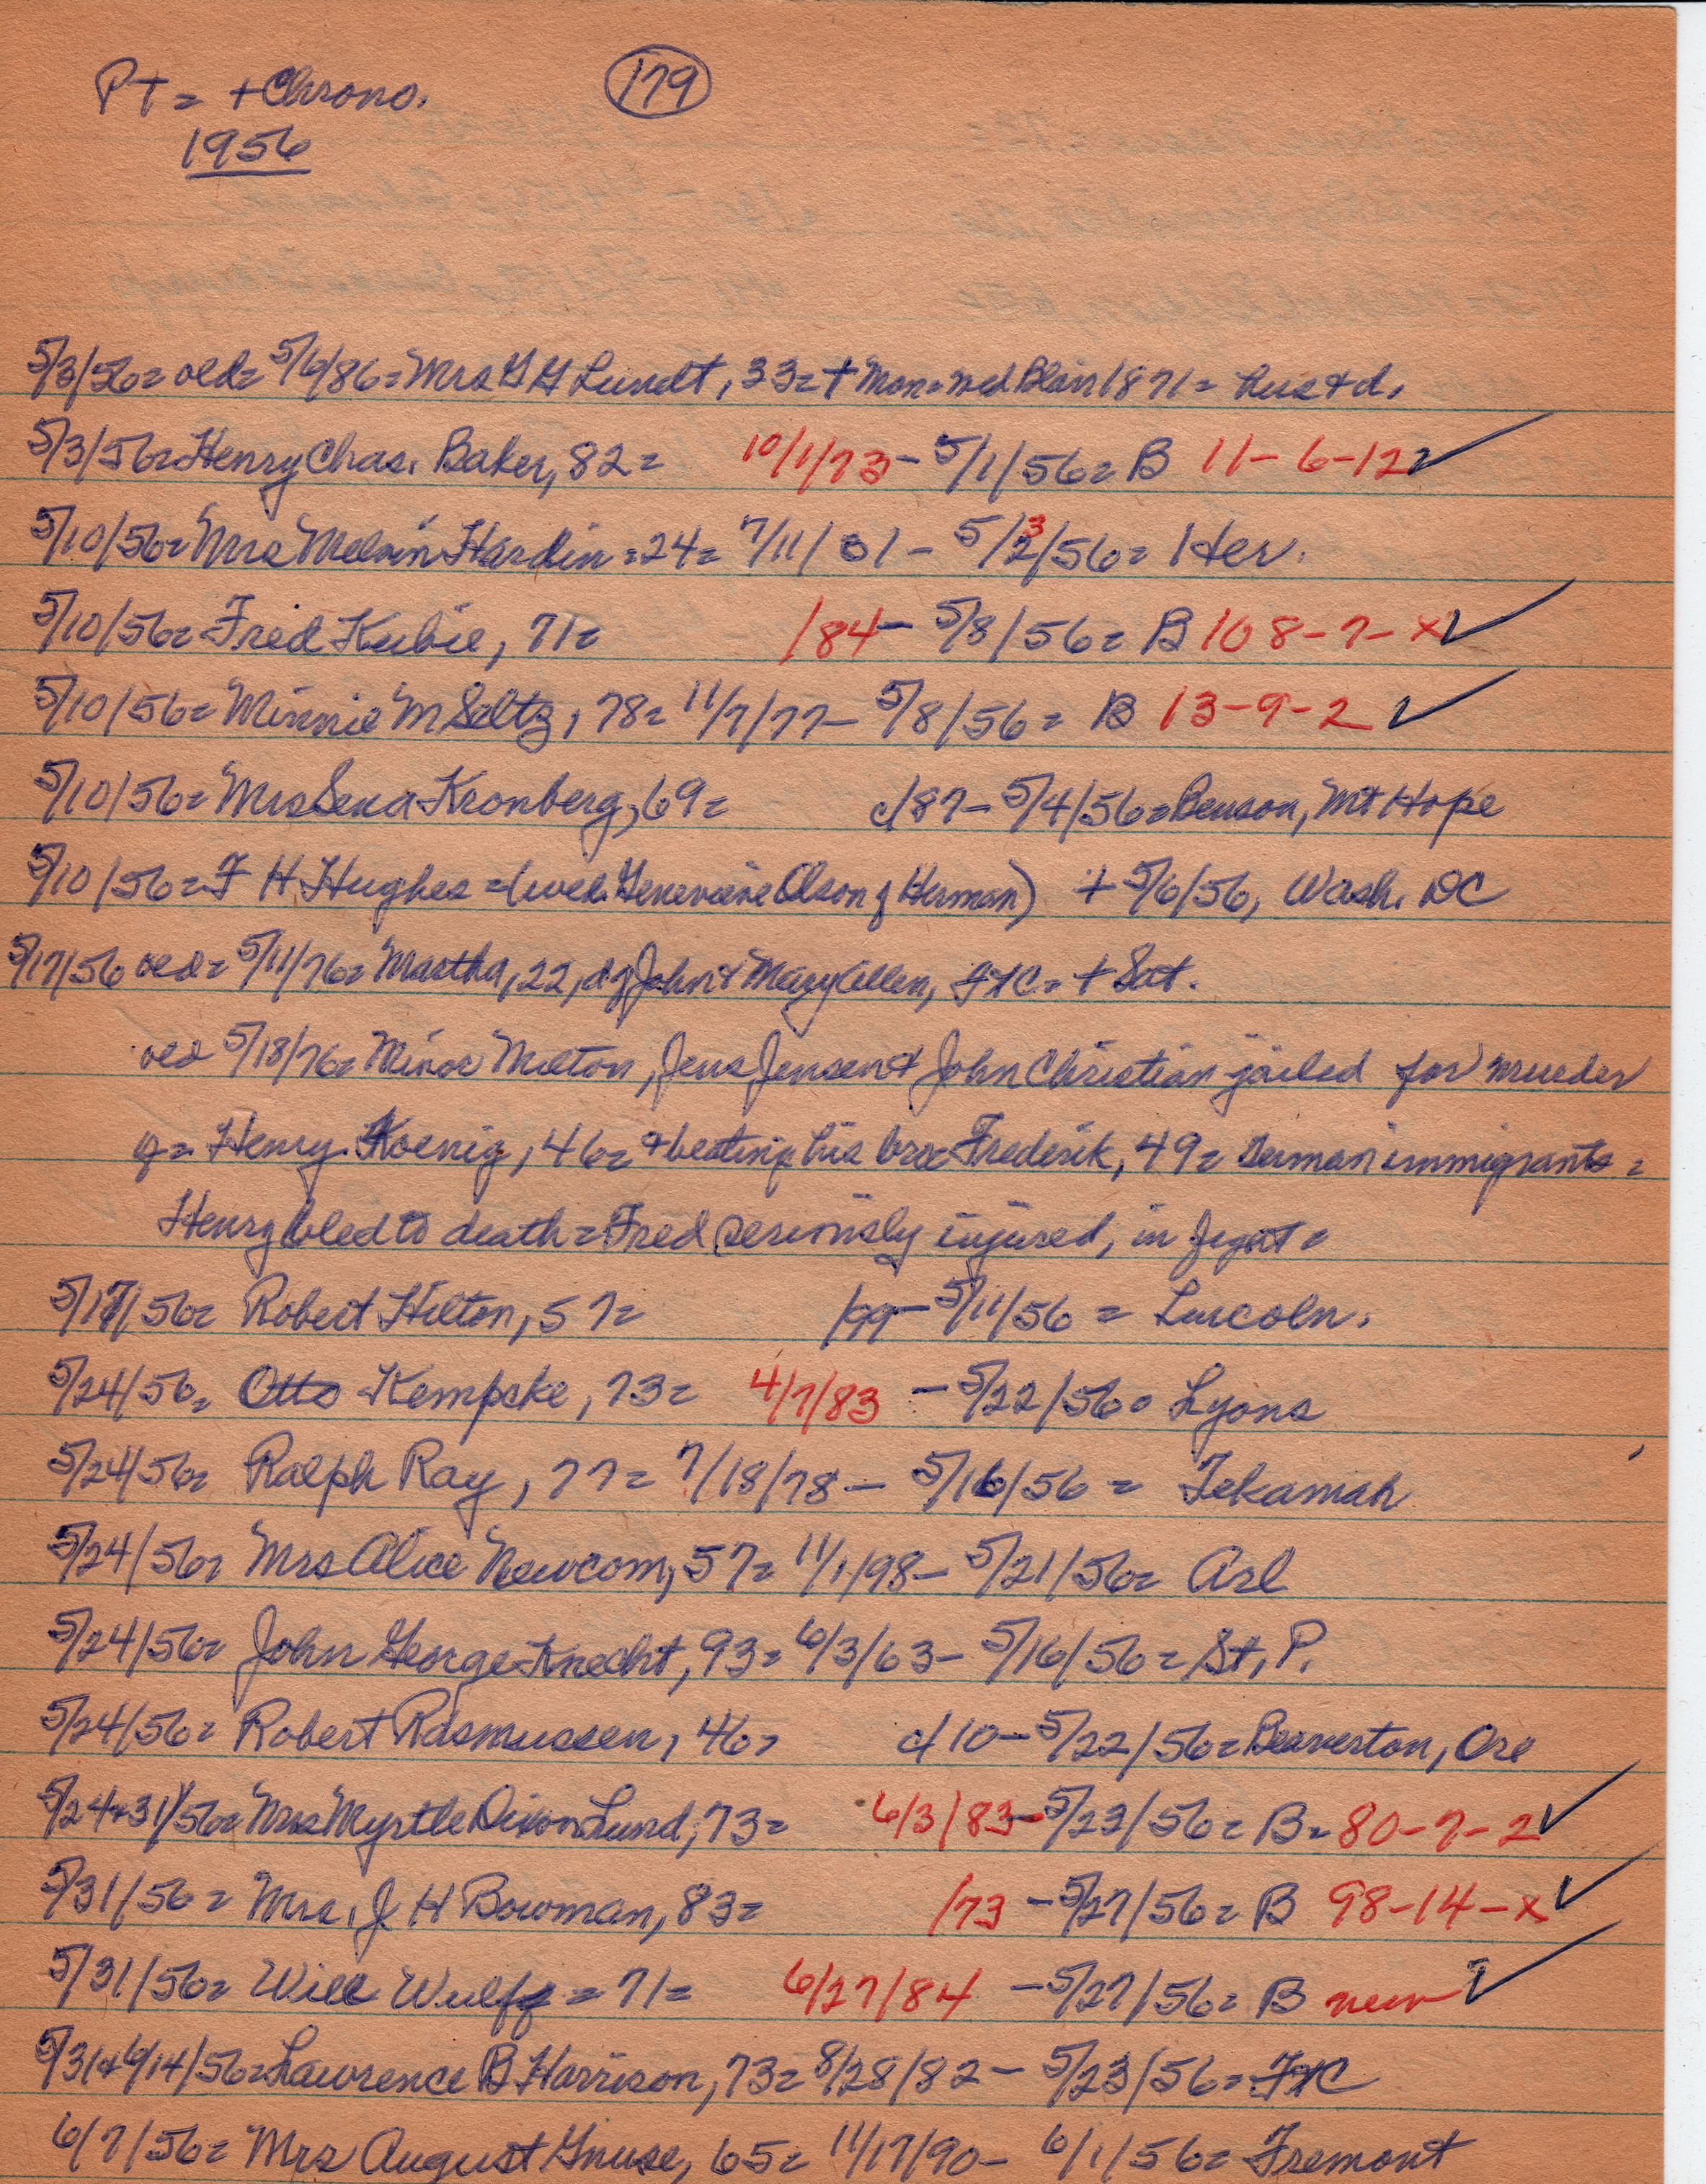 Pt = + Chrono. 179
1956
5/3/56= old= 5/6/86= Mrs G G Lundt, 33= + Mon= wed Blair 1871= hus + d.
5/3/56= Henry Chas. Baker, 82= 10/1/73 - 5/1/56= B 11-6-12 ✓
5/10/56= Mrs Melvin Hardin =24= 7/11/31 - 5/3/56= Her.
5/10/56= Fred Kubie, 71= /84 - 5/8/56= B 108-7-x ✓
5/10/56= Minnie M Seltz, 78= 11/7/77 - 5/8/56= B 13-9-2 ✓
5/10/56= Mrs Sena Kronberg, 69= c/87 - 5/4/56= Benson, Mt Hope
5/10/56= F H Hughes = (wed. Genevieve Olson of Herman) + 5/6/56, Wash. DC
5/17/56 old= 5/11/76= Martha, 22, d of John & Mary Allen, FtC= + Sat.
old 5/18/76= Minor Milton, Jens Jensen & John Christian jailed for murder
of= Henry Koenig, 46= & beating his bro Frederik, 49= German immigrants=
Henry bled to death= Fred seriously injured, in fight=
5/17/56= Robert Hilton, 57= /99 - 5/11/56 = Lincoln.
5/24/56= Otto Kempcke, 73= 4/7/83 - 5/22/56= Lyons
5/24/56= Ralph Ray, 77= 7/18/78 - 5/16/56 = Tekamah
5/24/56= Mrs Alice Newcom, 57= 11/1/98 - 5/21/56= Arl
5/24/56= John George Knecht, 93= 6/3/63 - 5/16/56= St. P.
5/24/56= Robert Rasmussen, 46= c/10 - 5/22/56= Beaverton, Ore
5/24+31/56= Mrs Myrtle Dixon Lund, 73= 6/3/83 - 5/23/56= B= 80-7-2 ✓
5/31/56= Mrs. J H Bowman, 83= /73 - 5/27/56= B 98-14-x ✓
5/31/56= Will Wulff = 71= 6/27/84 - 5/27/56= B new ✓
5/31+6/14/56= Lawrence B Harrison, 73= 8/28/82 - 5/23/56= FtC
6/7/56= Mrs August Gnuse, 65= 11/17/90 - 6/1/56= Fremont